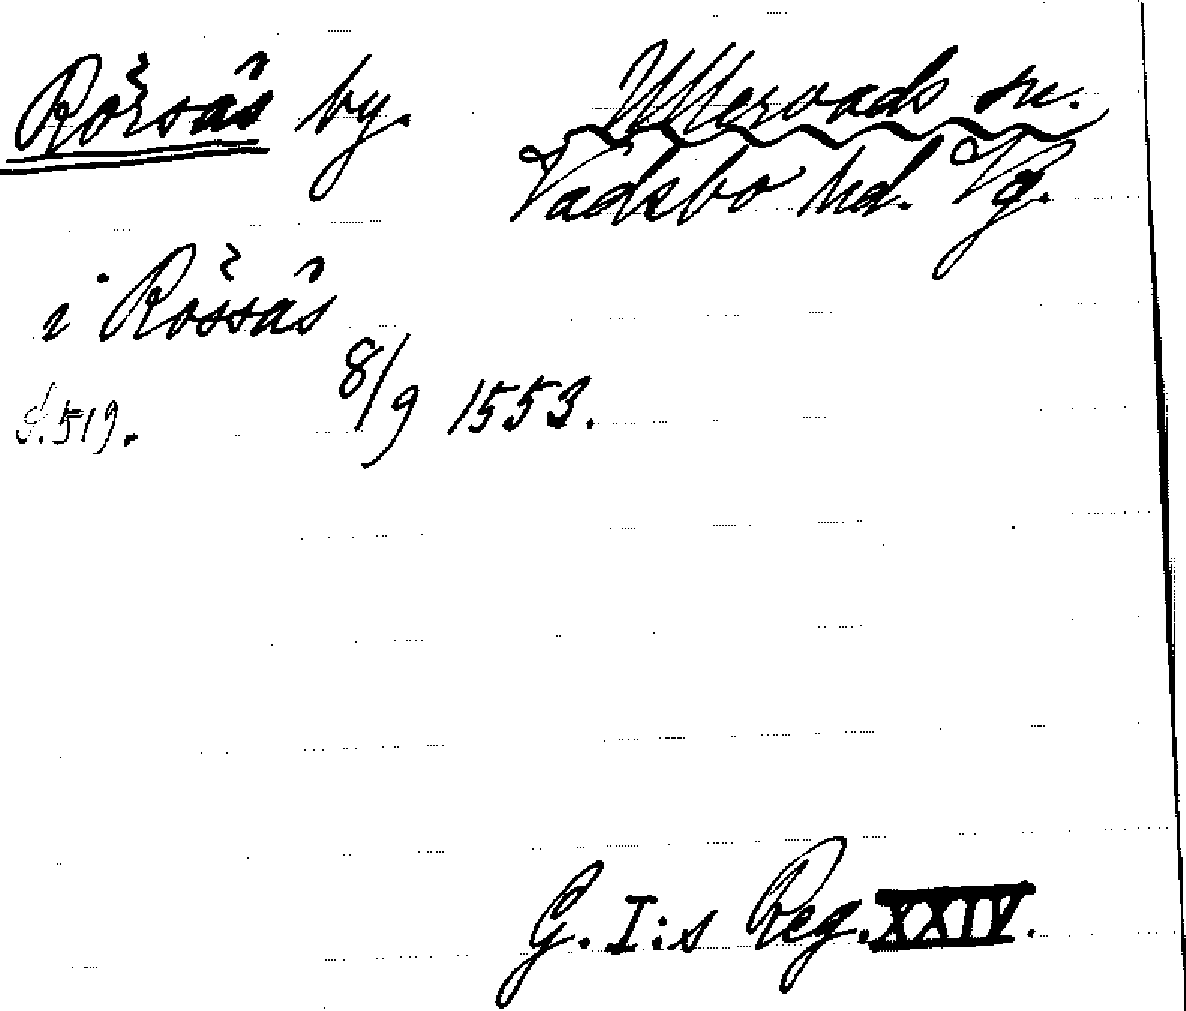 Rörsås by. Ullervads sn.
Vadsbo hd. Vg.
i Rössås
8/9 1553.
S. 519.
G. I:s Reg. XXIV.